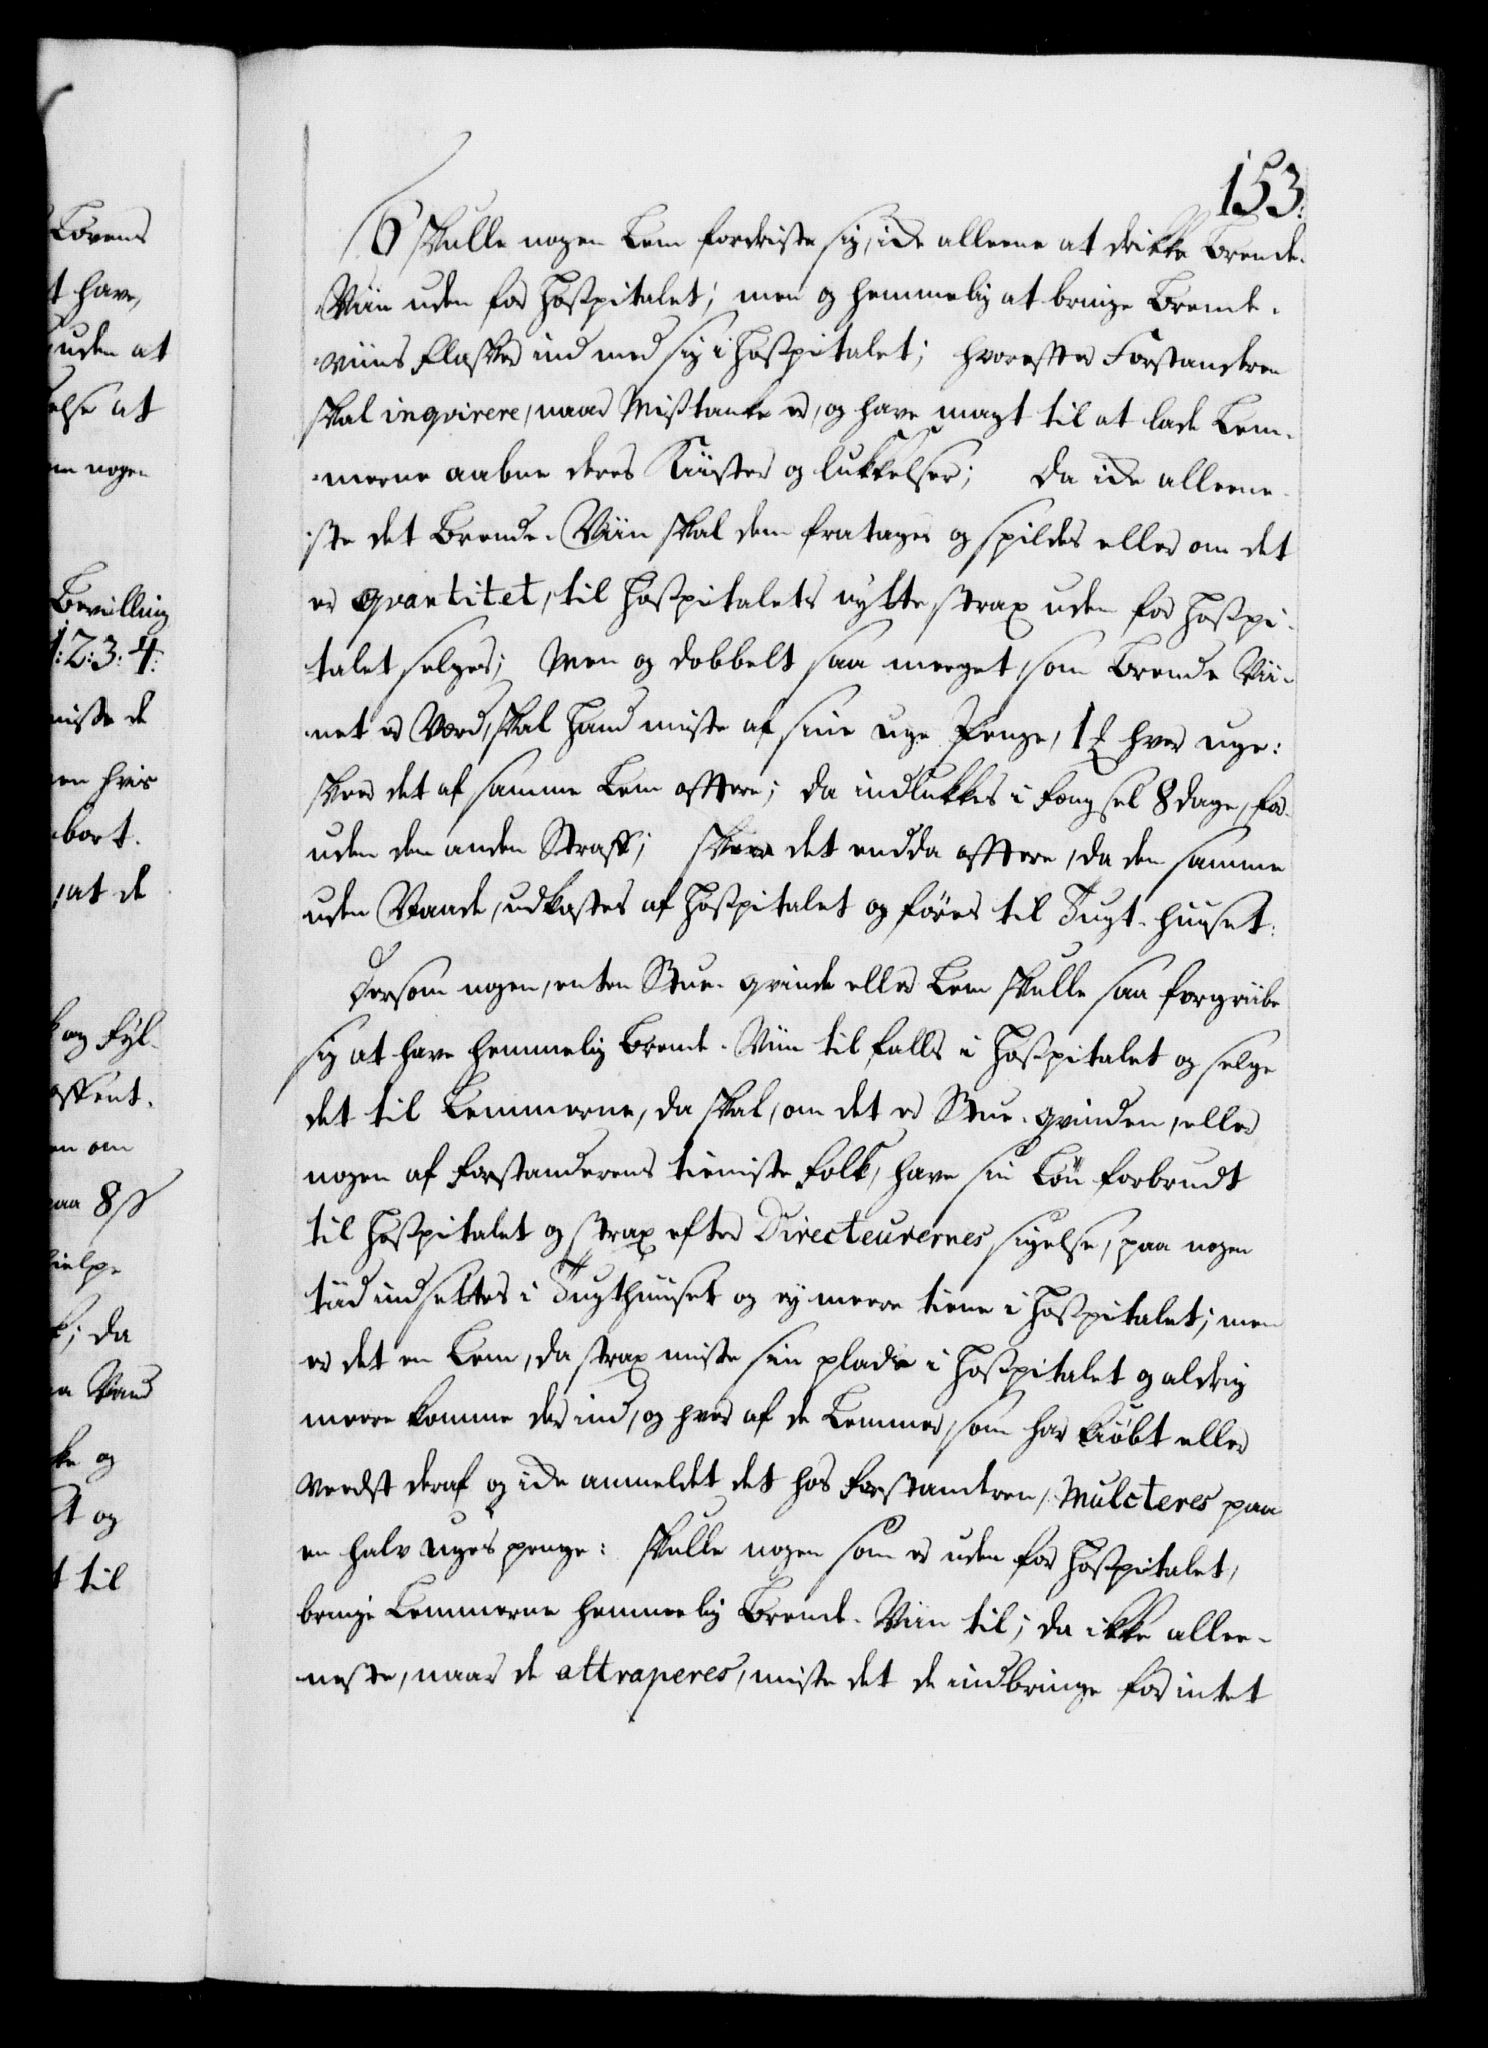 153.
6 Skulle nogen Lem fordriste sig, icke alleene at drikke Brende-
Viin uden for Hospitalet; men og hemmelig at bringe Brende-
viins flasker ind med sig i Hospitalet; hvorefter Forstanderen
skal inqvirere, naar Mistanke er, og have magt til at lade Lem-
merne aabne deres Kiister og lukkelser; da icke alleene-
ste det Brende-Viin skal dem fratages og spildes eller om det
er qvantitet, til Hospitalets nytte strax uden for Hospi-
talet selges; Men og dobbelt saa meeget som Brende Vii-
net er Værd, skal hand miste af sine uge Penge, 1 ß hver uge:
skeer det af samme Lem offtere; da indlukkes i fængsel 8 dage, for-
uden den anden Straff; skeer det endda offtere, da den samme
uden Naade, udkastes af Hospitalet og føres til Tugt-huuset:
Dersom nogen, enten Stue-qvinde eller Lem skulle saa forgriibe
sig at have hemmelig Brende-Viin til falls i Hospitalet og selge
det til Lemmerne, da skal, om det er Stue-qvinden, eller
nogen af Forstanderens tieniste folk, have sin Løn forbrudt
til Hospitalet og strax efter Directeurernes sigelse, paa nogen
tiid indsettes i Tugthuuset og ey meere tiene i Hospitalet; men
er det en Lem, da strax miste sin plads i Hospitalet og aldrig
meere komme der ind, og hver af de Lemmer, som har kiøbt eller
veedst deraf og icke anmeldet det hos Forstanderen, Mulcteres paa
en halv uges penge: skulle nogen som er uden for Hospitalet,
bringe Lemmerne hemmelig Brende-Viin til; da ikke allee-
neste, naar de attraperes, miste det de indbringe for intet
Lovens
t have,
uden at
else at
om nogen
Bevilling
1:2:3:4:
miste de
en hvis
bort.
, at de
k og Fyl-
offent-
en om
paa 8 ß
hielpe
k; da
a Vand
ke og
t og
t til